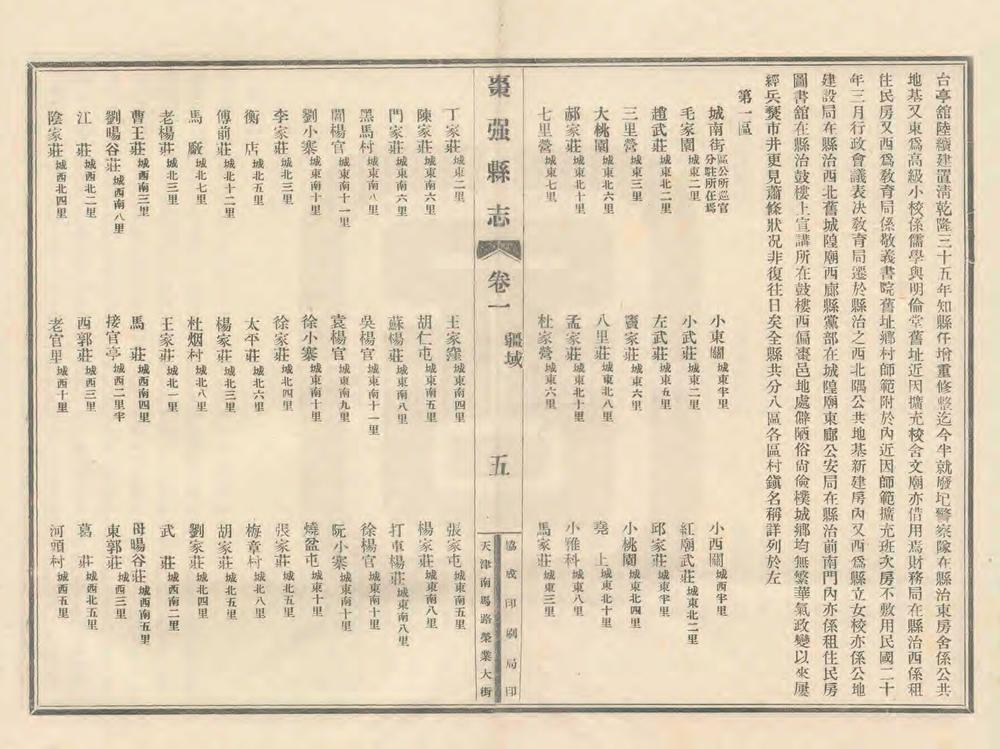 台亭舘陸續建置淸乾隆三十五年知縣任增重修整迄今半就廢圮警察隊在縣治東房舍係公共
地基又東爲高級小校係儒學與明倫堂舊址近因擴充校舍文廟亦借用焉財務局在縣治西係租
住民房又西爲教育局係敬義書院舊址鄉村師範附於內近因師範擴充班次房不敷用民國二十
年三月行政會議表決教育局遷於縣治之西北隅公共地基新建房內又西爲縣立女校亦係公地
建設局在縣治西北舊城隍廟西廊縣黨部在城隍廟東廊公安局在縣治前南門內亦係租住民房
圖書舘在縣治鼓樓上宣講所在鼓樓西偏棗邑地處僻陋俗尙儉樸城鄉均無繁華氣政變以來屢
經兵燹市井更見蕭條狀况非復往日矣全縣共分八區各區村鎭名稱詳列於左
第一區
城南街區公所巡官分駐所在焉 小東關城東半里 小西關城西半里
毛家園城東二里 小武莊城東二里 紅廟武莊城東北二里
趙武莊城東北二里 左武莊城東五里 邱家莊城東半里
三里營城東三里 竇家莊城東六里 小桃園城東北四里
大桃園城東北六里 八里莊城東北八里 堯上城東北十里
郝家莊城東北十里 孟家莊城東北十里 小雅科城東八里
七里營城東七里 杜家營城東六里 馬家莊城東三里
棗强縣志 卷一 疆域 五 協成印刷局印 天津南馬路榮業大街
丁家莊城東二里 王家窪城東南四里 張家屯城東南五里
陳家莊城東南六里 胡仁屯城東南五里 楊家莊城東南八里
門家莊城東南六里 蘇楊莊城東南八里 打車楊莊城東南八里
黑馬村城東南八里 吳楊官城東南十一里 徐楊官城東南十里
閻楊官城東南十一里 袁楊官城東南九里 阮小寨城東南十里
劉小寨城東南十里 徐小寨城東南十里 燒盆屯城東十里
李家莊城北三里 徐家莊城北四里 張家莊城北五里
衡店城北五里 太平莊城北六里 梅章村城北八里
傅前莊城北十二里 楊家莊城北三里 胡家莊城北五里
馬廠城北七里 杜烟村城北八里 劉家莊城北四里
老楊莊城北三里 王家莊城北一里 武莊城西南二里
曹王莊城西南三里 馬莊城西南四里 母暘谷莊城西南五里
劉暘谷莊城西南八里 接官亭城西二里半 東郭莊城西三里
江莊城西北二里 西郭莊城西三里 葛莊城西北五里
陰家莊城西北四里 老官里城西十里 河頭村城西五里